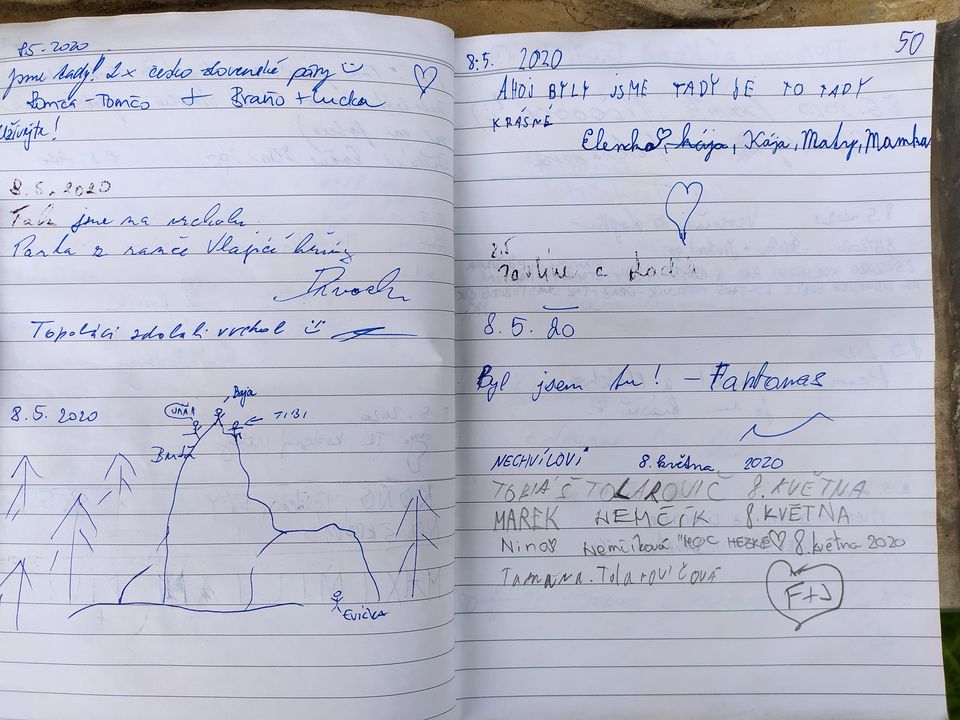 8.5.2020
Jsme tady! 2x česko slovenské páry
Romča-Tomčo + Braňo + Lucka
Užívejte!
8.5.2020
Tak jsme na vrcholu.
Parta z ranče Vlající hřívy
Topoláci zdolali vrchol
8.5.2020
Bája
TIBI
Evička
50
8.5. 2020
AHOJ BYLY JSME TADY JE TO TADY
KRÁSNÉ
Elenka, Kája, Kája, Maty, Mamka
8.5. 20
Byl jsem tu! - Fantomas
NECHVÍLOVI 8. května, 2020
TOBIÁŠ TOLAROVIČ 8. KVĚTNA
MAREK NEMČÍK 8. KVĚTNA
Nina Nemčíková "MOC HEZKÉ 8. května 2020
Tamara. Tolarovičová
F+J